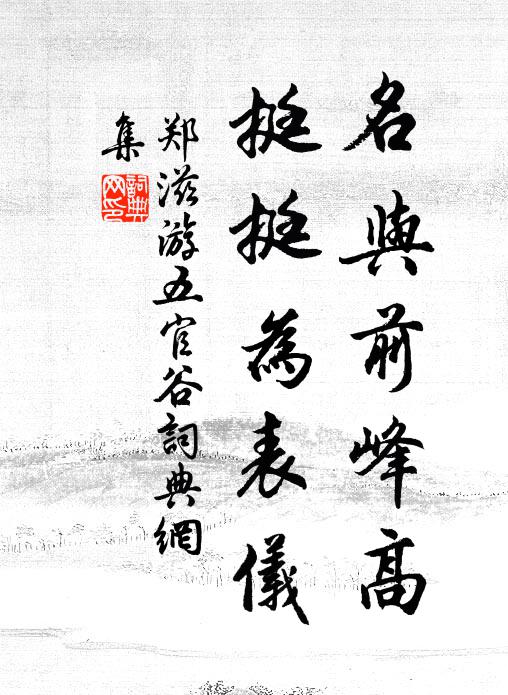 名與前峰高
挺挺為表儀
郑滋游五官谷詞典網
集
詞典
网印